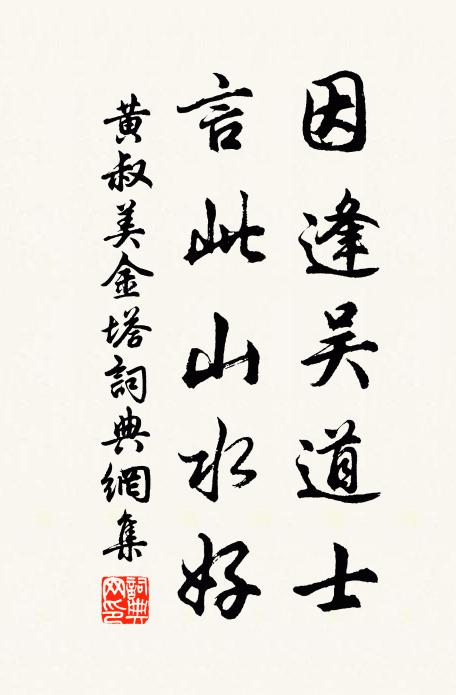 因逢吴道士
言此山水好
黄叔美金塔詞典網集
詞典
网印